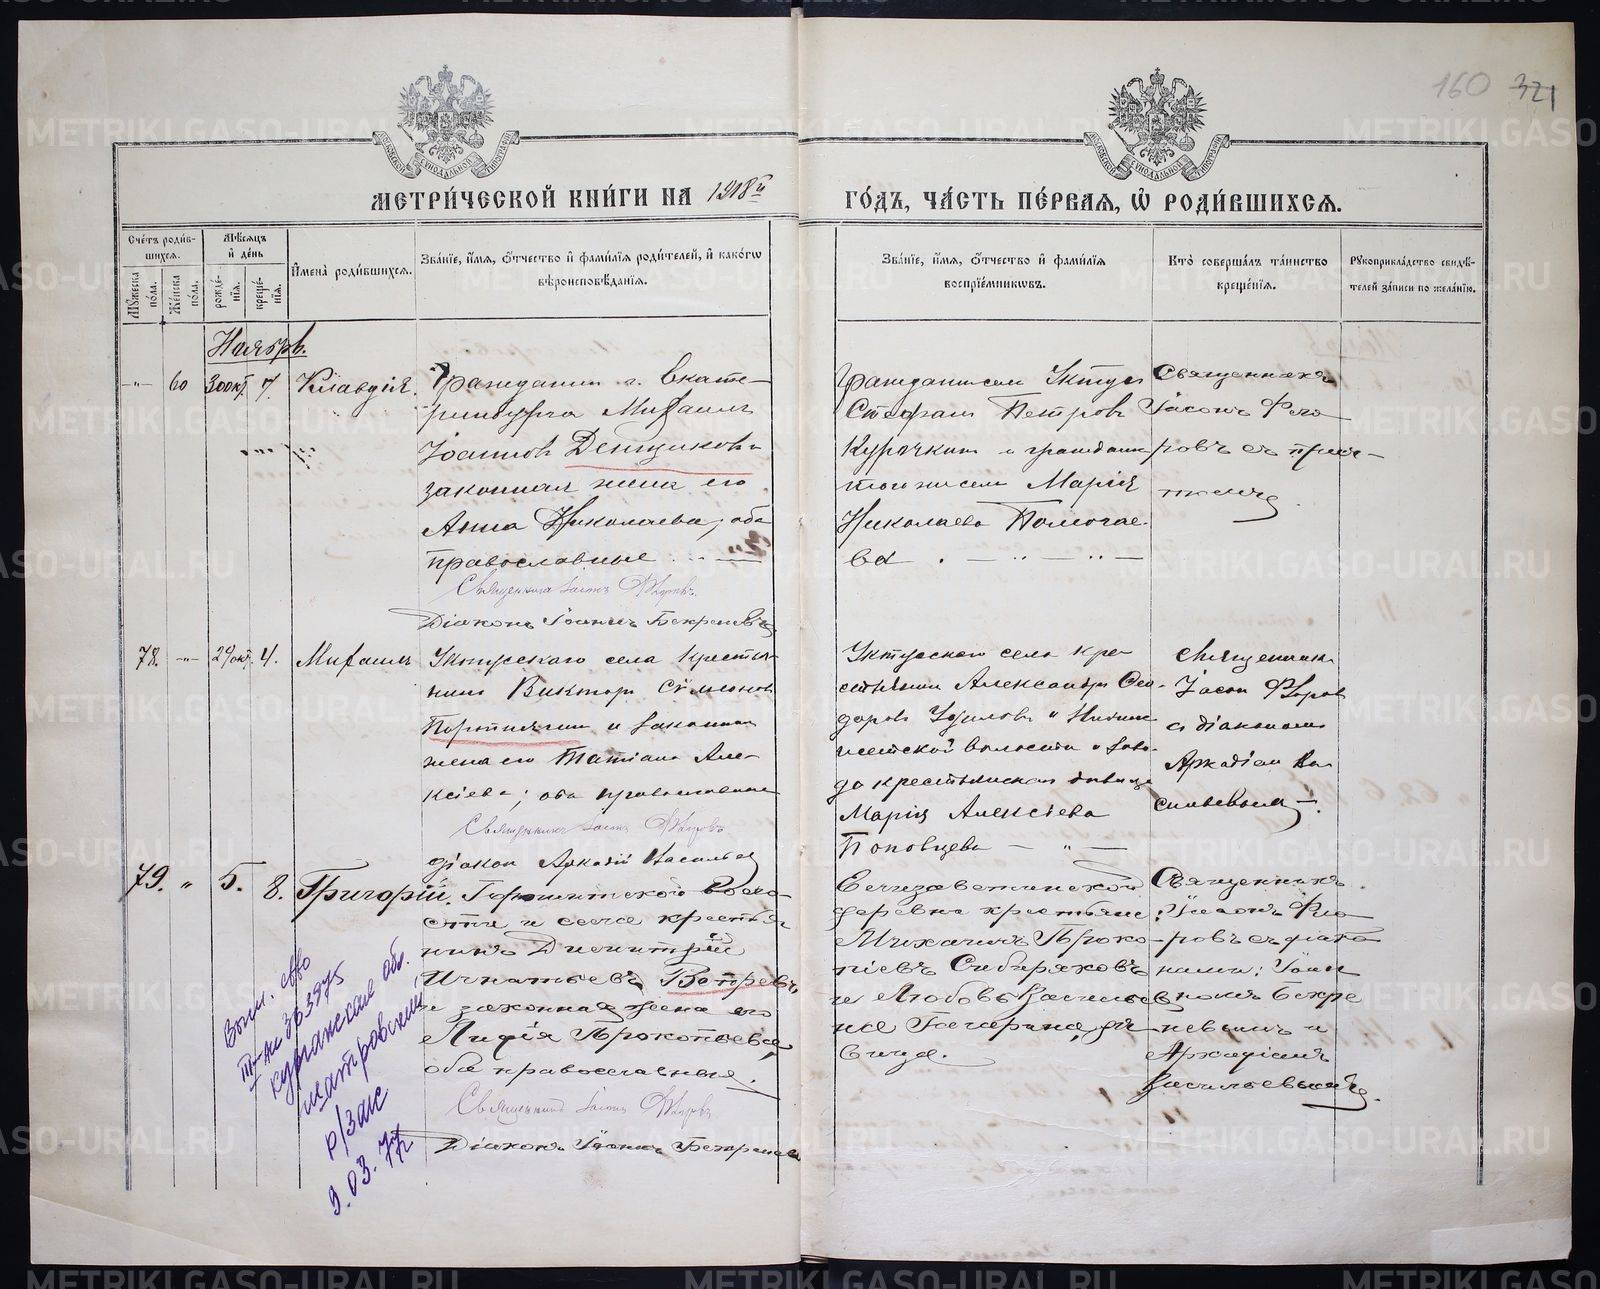 160 321
МЕТРИ́ЧЕСКОЙ КНИ́ГИ НА 1918й ГО́ДЪ, ЧА́СТЬ ПЕ́РВАЯ, Ѡ РОДИ́ВШИХСЯ.
Сче́тъ роди́в-
шихся.
Мꙋ́жеска по́ла.
Же́нска по́ла.
Мѣ́сяцъ и де́нь
рожде́-
нїя.
креще́-
нїя.
И҆мена̀ роди́вшихся.
Зва́нїе, и҆́мя, ѻ҆́тчество и҆ фамилїя роди́телей, и҆ како́гѡ
вѣроисповѣ́данїя.
Зва́нїе, и҆́мя, ѻ҆́тчество и҆ фами́лїя
воспрїе́мникѡвъ.
Кто̀ соверша́лъ та́инство
креще́нїя.
Рꙋкоприкла́дство свидѣ́-
телей за́писи по жела́нїю.
Ноябрь.
-"- 60 30 окт. 7. Клавдія.
Гражданин г. Екате-
ринбурга Михаилъ
Іоаннов Денщиковъ и
законная жена его
Анна Николаева, оба
православные
Священникъ Іасонъ Флоровъ
Діаконъ Іоаннъ Бекреневъ
Гражданин сел Уктус
Стефан Петровъ
Курочкин и граждан
Марія
Николаева Помогае-
ва
Священникъ
Іасонъ Фло-
ровъ съ прич-
томъ
78. -"- 29 окт. 4. Михаилъ
Уктусскаго села крестья-
нин Виктор Симеонов
и законная
жена его Татіана Але-
ксіева; оба православные
Священникъ Іасонъ Флоровъ
діакон Аркадій Васильев
Уктусскаго села кре-
стьянин Александръ Ѳео-
доровъ и
волости и заво-
да крестьянская девица
Марія Алексіева
Поповцева — " —
Священник
Іасон Флоров
с діаконом
Аркадіем Ва-
сильевым.
79. " 5. 8. Григорій.
воло-
сти и села крестья-
нинъ Димитрій
Игнатьевъ
и законная жена его
Лидія Прокопьева,
оба православныя.
Священник Іасон Флоровъ
Діаконъ Іоаннъ Бекреневъ
Елизаветинской
деревни крестьян:
Михаилъ Проко-
піевъ Сибиряковъ
и Любовь Василье-
на Гагарина, дѣ-
вица.
Священникъ
Іасонъ Фло-
ровъ съ діако-
нами: Іоан-
номъ Бекре-
невымъ и
Аркадіемъ
Васильевымъ.
Выд. св-во
III-АИ 363975
Курганская обл.
Шатровский
р/загс
9.03.77г
METRIKI.GASO-URAL.RU